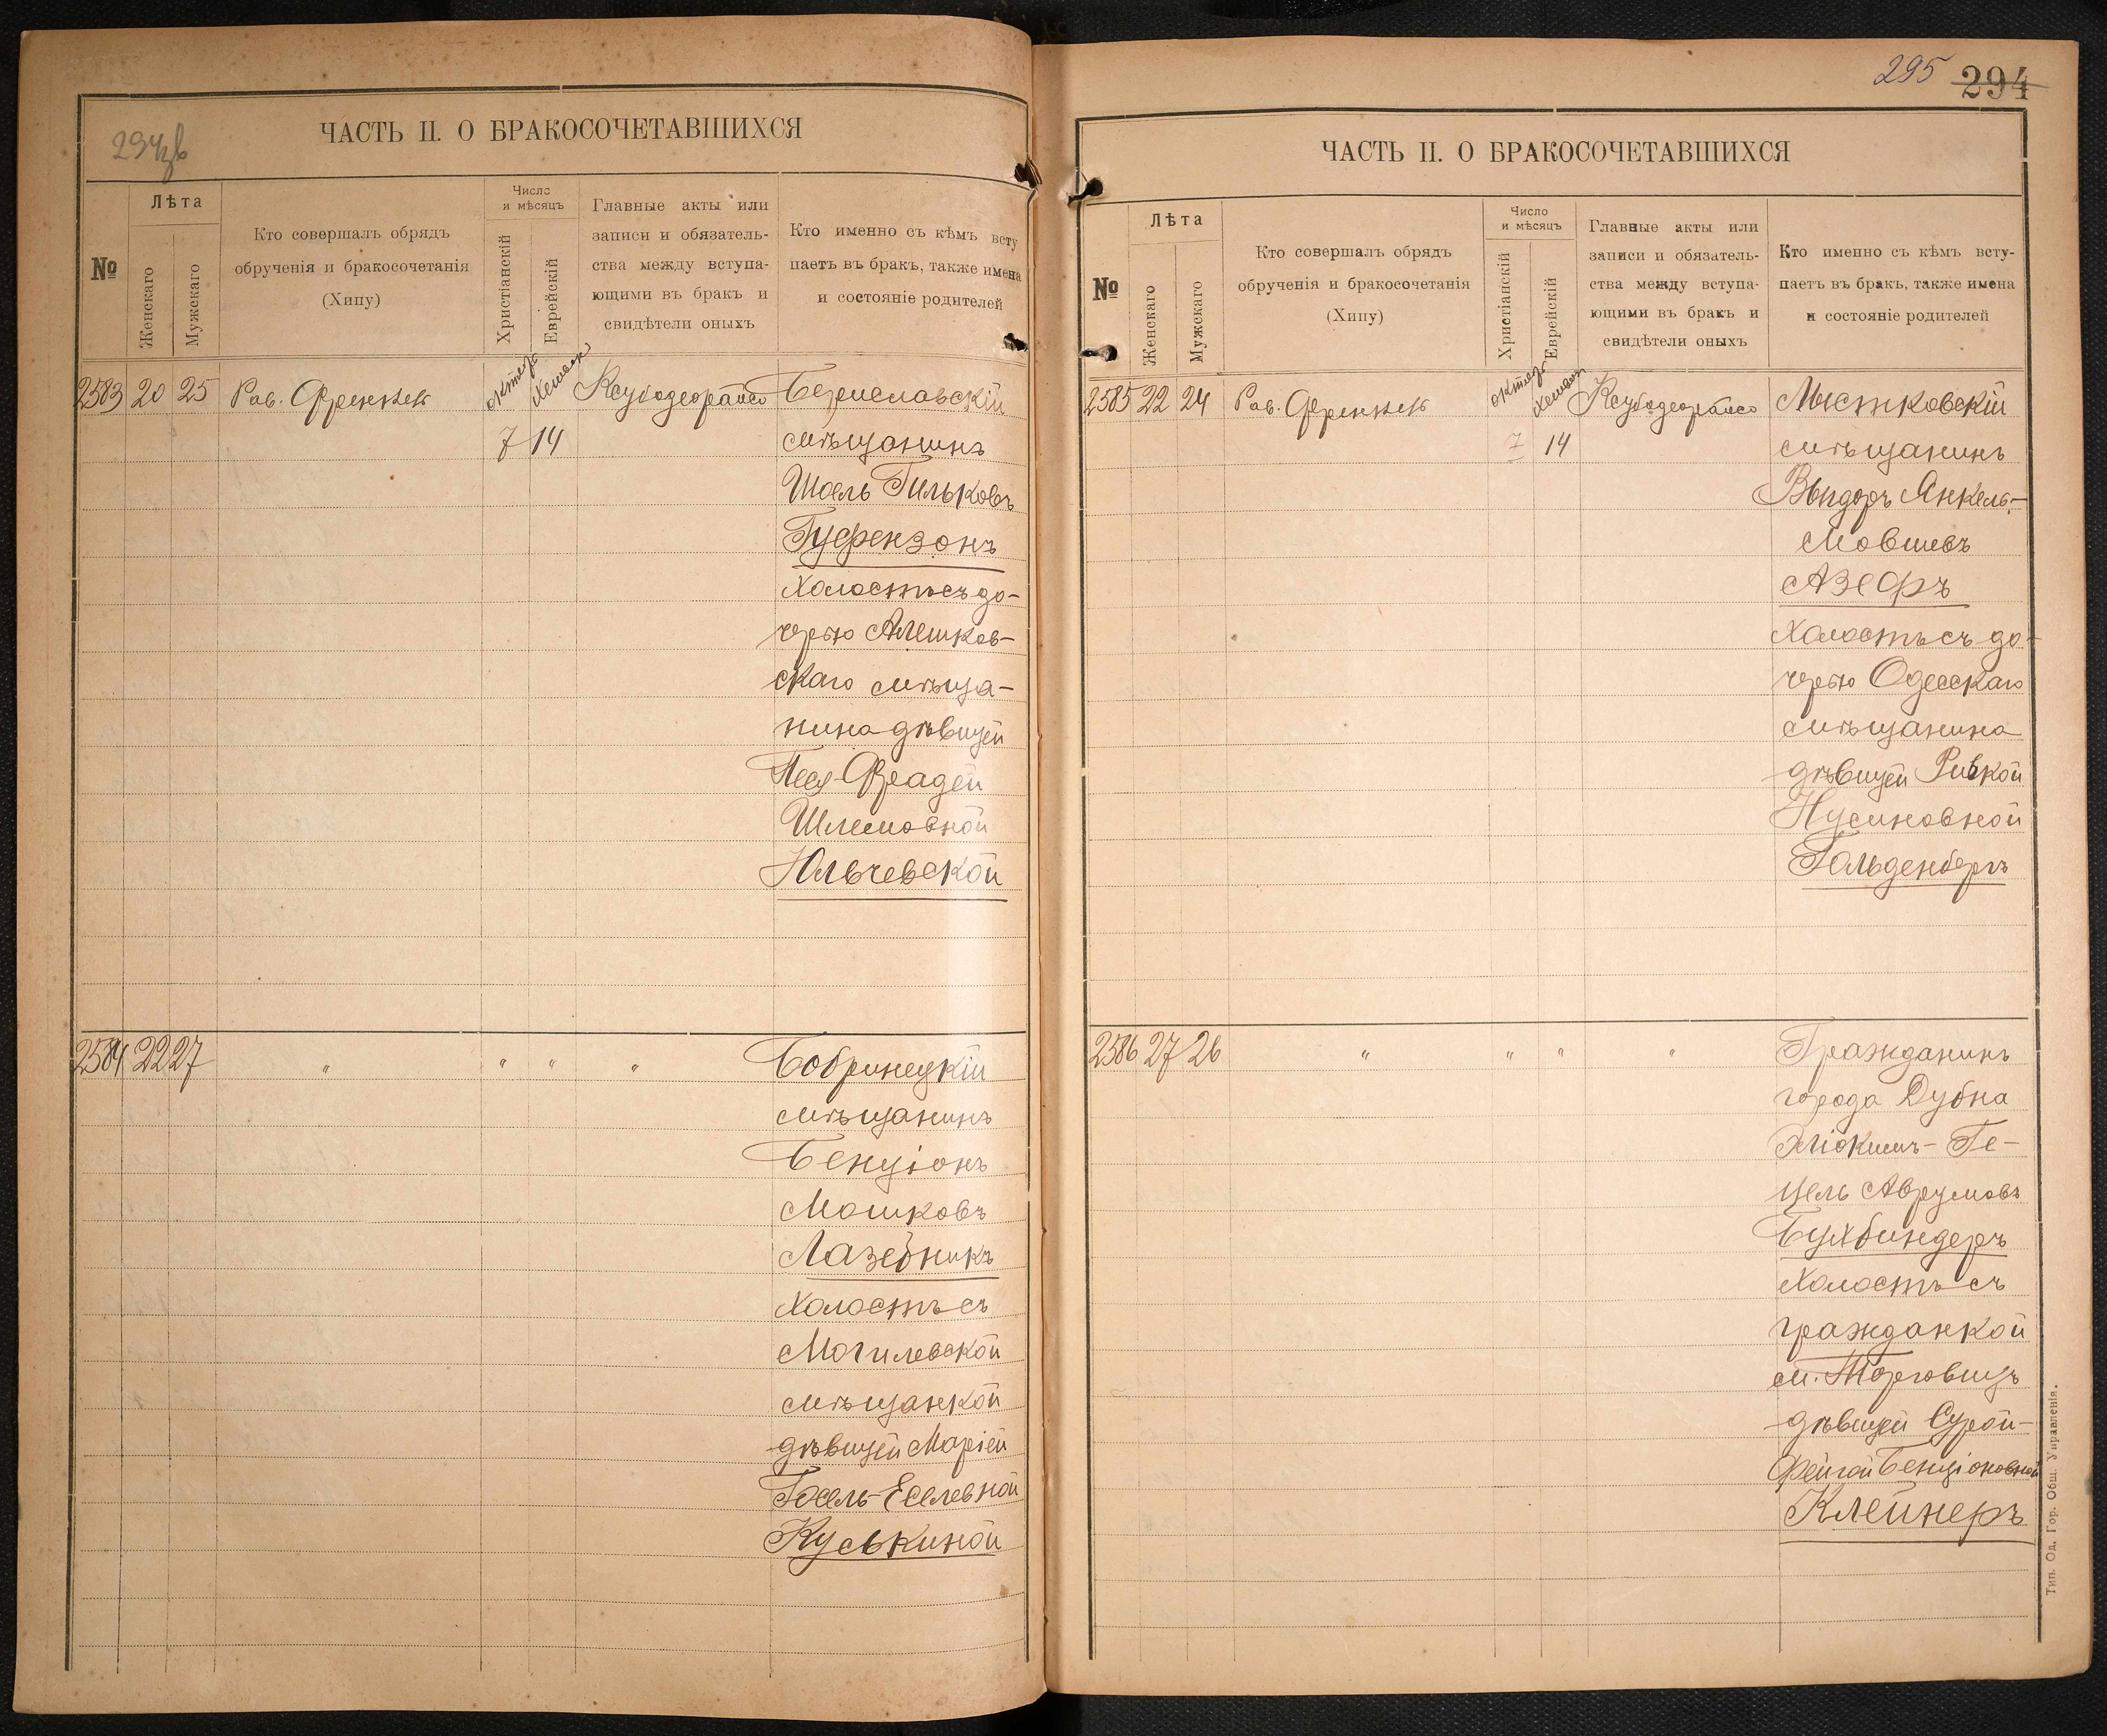 294об
ЧАСТЬ II. О БРАКОСОЧЕТАВШИХСЯ
№
Лѣта
Женскаго
Мужскаго
Кто совершалъ обрядъ
обрученія и бракосочетанія
(Хипу)
Число
и мѣсяцъ
Христіанскій
Еврейскій
Главные акты или
записи и обязатель-
ства между вступа-
ющими въ бракъ и
свидѣтели оныхъ
Кто именно съ кѣмъ всту
паетъ въ бракъ, также имена
и состояніе родителей
2583 20 25 Рав. Френкель
7 14
Бериславскій
мѣщанинъ
Шоель Гильковъ
Гуфензонъ
холостъ съ до-
черью Алешков-
скаго мѣща-
нина дѣвицей
Песя-Фрадей
Шлемовной
Юльчевской
2584 22 27 " " " "
Бобринецкій
мѣщанинъ
Бенціонъ
Мошковъ
Лазебникъ
холостъ съ
Могилевской
мѣщанкой
дѣвицей Маріей
Госель-Еселевной
Куськиной
295 294
ЧАСТЬ II. О БРАКОСОЧЕТАВШИХСЯ
№
Лѣта
Женскаго
Мужскаго
Кто совершалъ обрядъ
обрученія и бракосочетанія
(Хипу)
Число
и мѣсяцъ
Христіанскій
Еврейскій
Главные акты или
записи и обязатель-
ства между вступа-
ющими въ бракъ и
свидѣтели оныхъ
Кто именно съ кѣмъ всту-
паетъ въ бракъ, также имена
и состояніе родителей
2585 22 24 Рав. Френкель
7 14
Мястковскій
мѣщанинъ
Выдоръ Янкель-
Мовшевъ
Азефъ
холостъ съ до-
черью Одесскаго
мѣщанина
дѣвицей Ривкой
Нусиновной
Гольденбергъ
2586 27 26 " " " "
Гражданинъ
города Дубна
Ге-
цель Аврумовъ
Бухбиндеръ
холостъ съ
гражданкой
м. Торговицъ
дѣвицей Сурой-
Фейгой Бенціоновной
Клейнеръ
Тип. Од. Гор. Общ. Управленія.